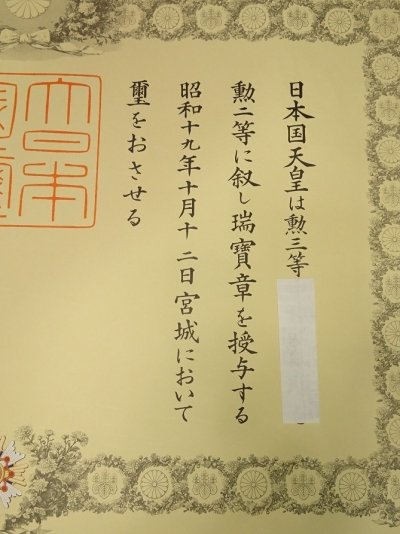 日本国天皇は勲三等
勲二等に叙し瑞寶章を授与する
昭和十九年十月十二日宮城において
璽をおさせる
大日本